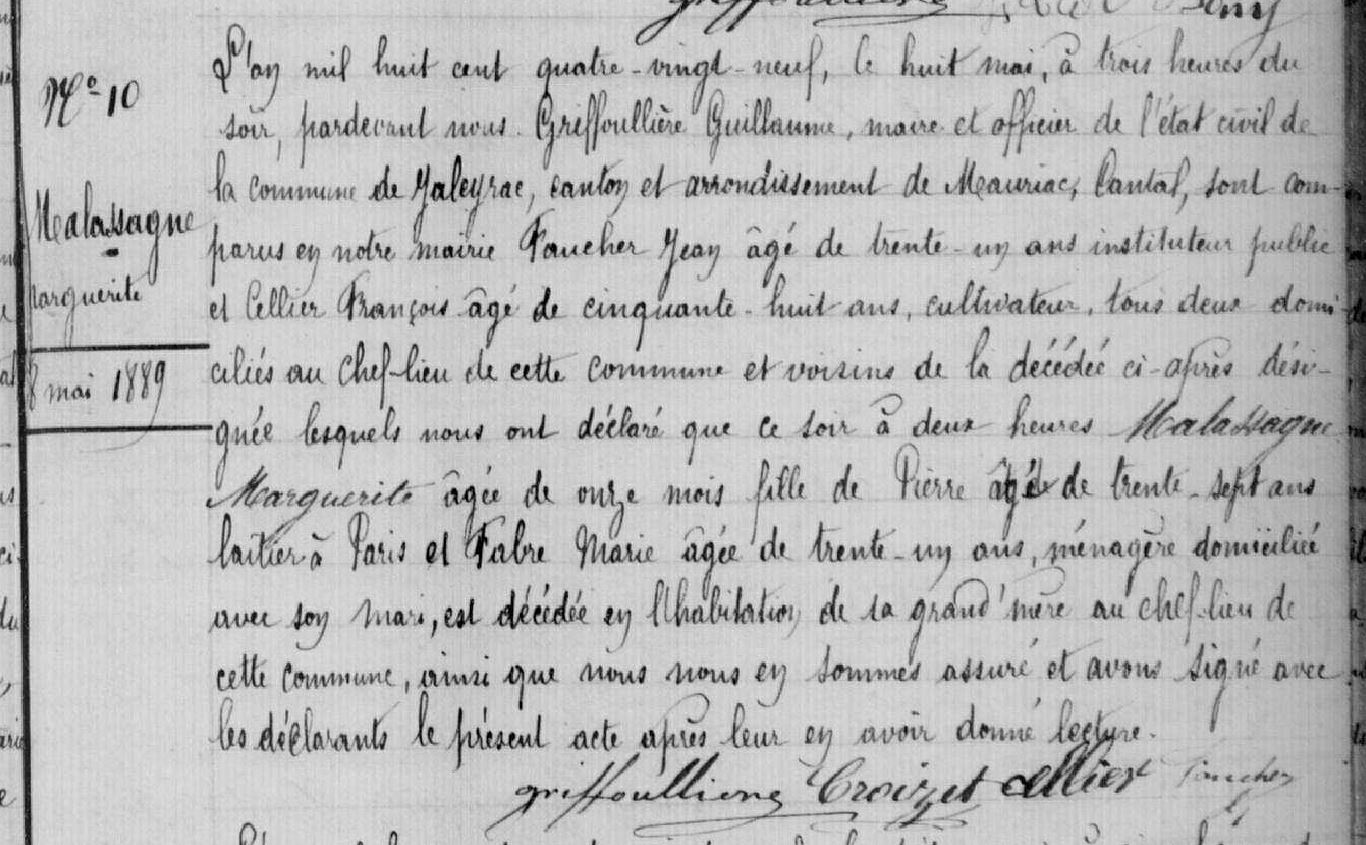 N° 10
Malassagne
Marguerite
8 mai 1889
L'an mil huit cent quatre-vingt-neuf, le huit mai, à trois heures du
soir, pardevant nous. Griffoullière Guillaume, maire et officier de l'état civil de
la commune de Jaleyrac, canton et arrondissement de Mauriac, Cantal, sont com-
parus en notre mairie Faucher Jean âgé de trente-un ans instituteur public
et Cellier François âgé de cinquante-huit ans, cultivateur, tous deux domi-
ciliés au chef-lieu de cette commune et voisins de la décédée ci-après dési-
gnée lesquels nous ont déclaré que ce soir à deux heures Malassagne
Marguerite âgée de onze mois fille de Pierre âgé de trente-sept ans
laitier à Paris et Fabre Marie âgée de trente-un ans, ménagère domiciliée
avec son mari, est décédée en l'habitation de sa grand'mère au chef-lieu de
cette commune, ainsi que nous nous en sommes assuré et avons signé avec
les déclarants le présent acte après leur en avoir donné lecture.
Griffoullière Croizet Cellier Faucher